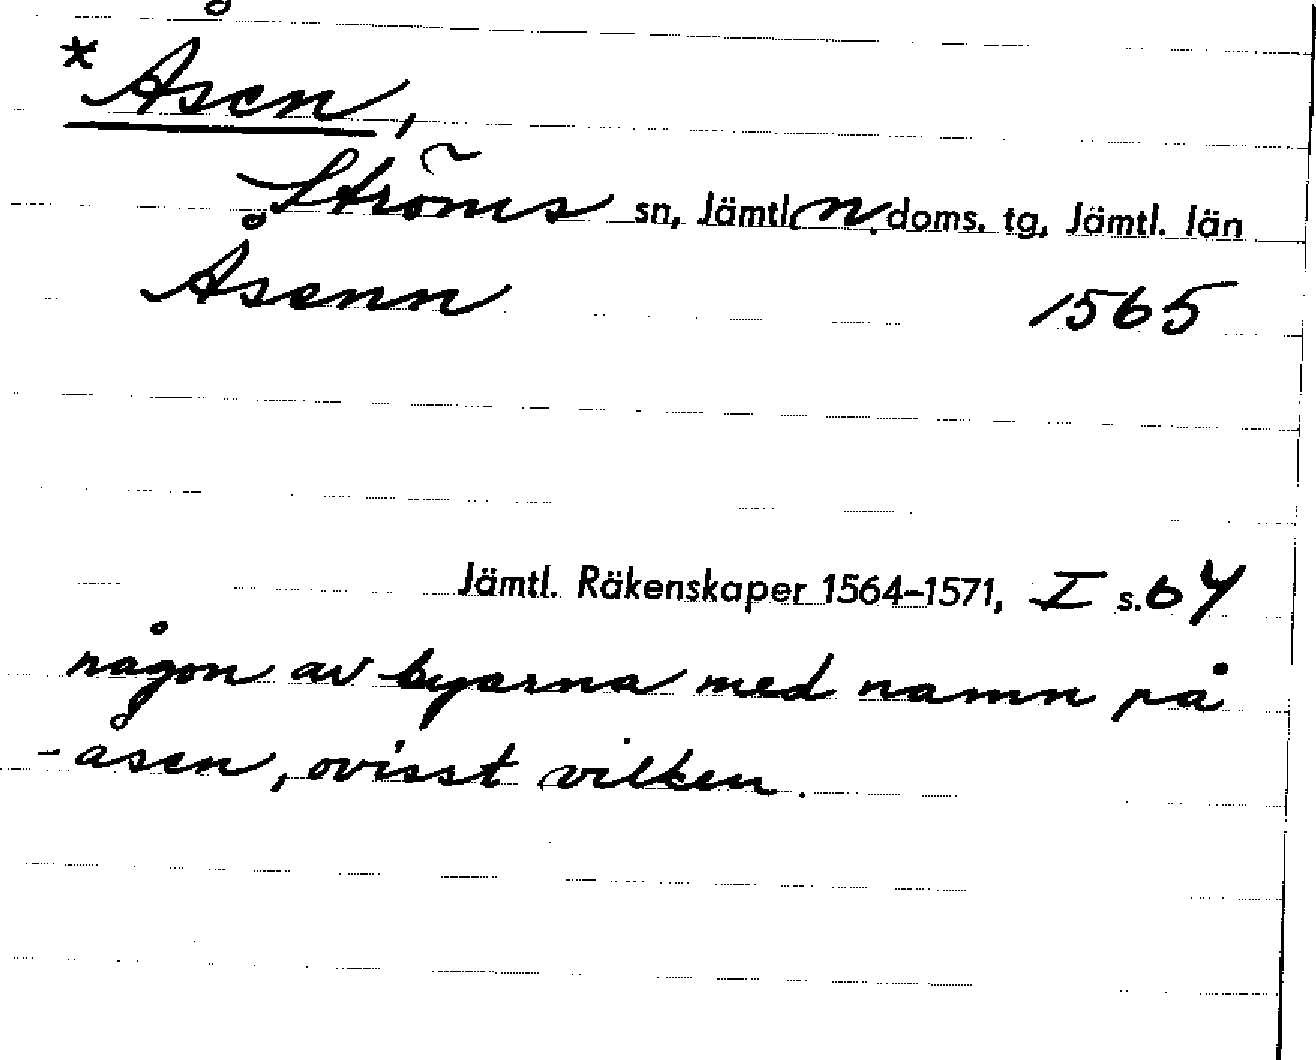 * Åsen,
Ströms sn, Jämtl. n. doms. tg, Jämtl. län
Åsenn 1565
Jämtl. Räkenskaper 1564–1571, I s. 64
någon av byarna med namn på
-åsen, ovisst vilken.